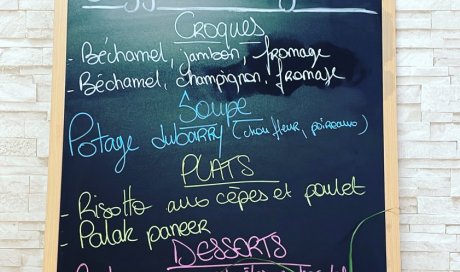 Croques
- Béchamel, jambon, fromage
- Béchamel, champignon, fromage
Soupe
Potage dubarry (chou fleur, poireaux)
PLATS
- Risotto aux cèpes et poulet
- Palak paneer
DESSERTS